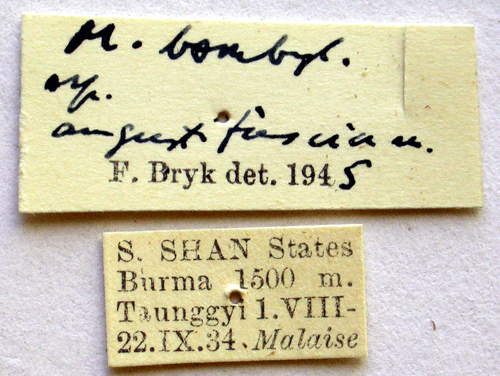 M. bombyl.
sp.
angustifascia n.
F. Bryk det. 1945
S. SHAN States
Burma 1500 m.
Taunggyi 1.VIII-
22.IX.34. Malaise